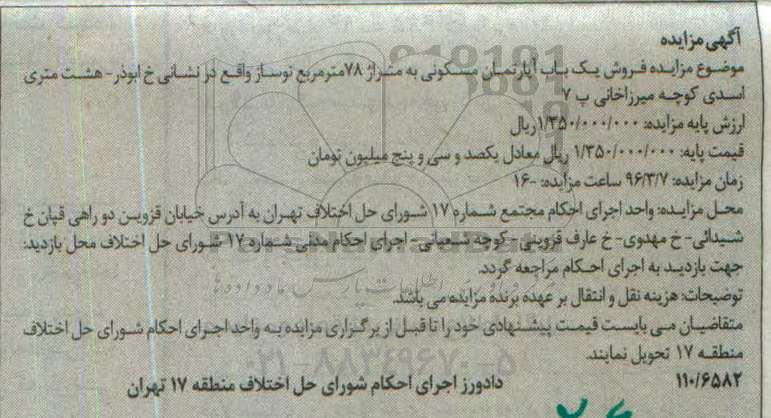 آگهی مزایده
موضوع مزایده فروش یک باب آپارتمان مسکونی به متراژ ۷۸مترمربع نوساز واقع در نشانی خ ابوذر- هشت متری
اسدی کوچه میرزاخانی پ ۷
ارزش پایه مزایده: ۱/۳۵۰/۰۰۰/۰۰۰ریال
قیمت پایه: ۱/۳۵۰/۰۰۰/۰۰۰ ریال معادل یکصد و سی و پنج میلیون تومان
زمان مزایده: ۹۶/۳/۷ ساعت مزایده: -۱۶
محل مزایده: واحد اجرای احکام مجتمع شماره ۱۷ شورای حل اختلاف تهران به آدرس خیابان قزوین دو راهی قپان خ
شیدائی- خ مهدوی- خ عارف قزوینی- کوچه شعبانی- اجرای احکام مدنی شماره ۱۷ شورای حل اختلاف محل بازدید:
جهت بازدید به اجرای احکام مراجعه گردد.
توضیحات: هزینه نقل و انتقال بر عهده برنده مزایده می باشد.
متقاضیان می بایست قیمت پیشنهادی خود را تا قبل از برگزاری مزایده به واحد اجرای احکام شورای حل اختلاف
منطقه ۱۷ تحویل نمایند.
۱۱۰/۶۵۸۲ دادورز اجرای احکام شورای حل اختلاف منطقه ۱۷ تهران
۰۲۱-۸۸۳۴۹۶۷۰-۵